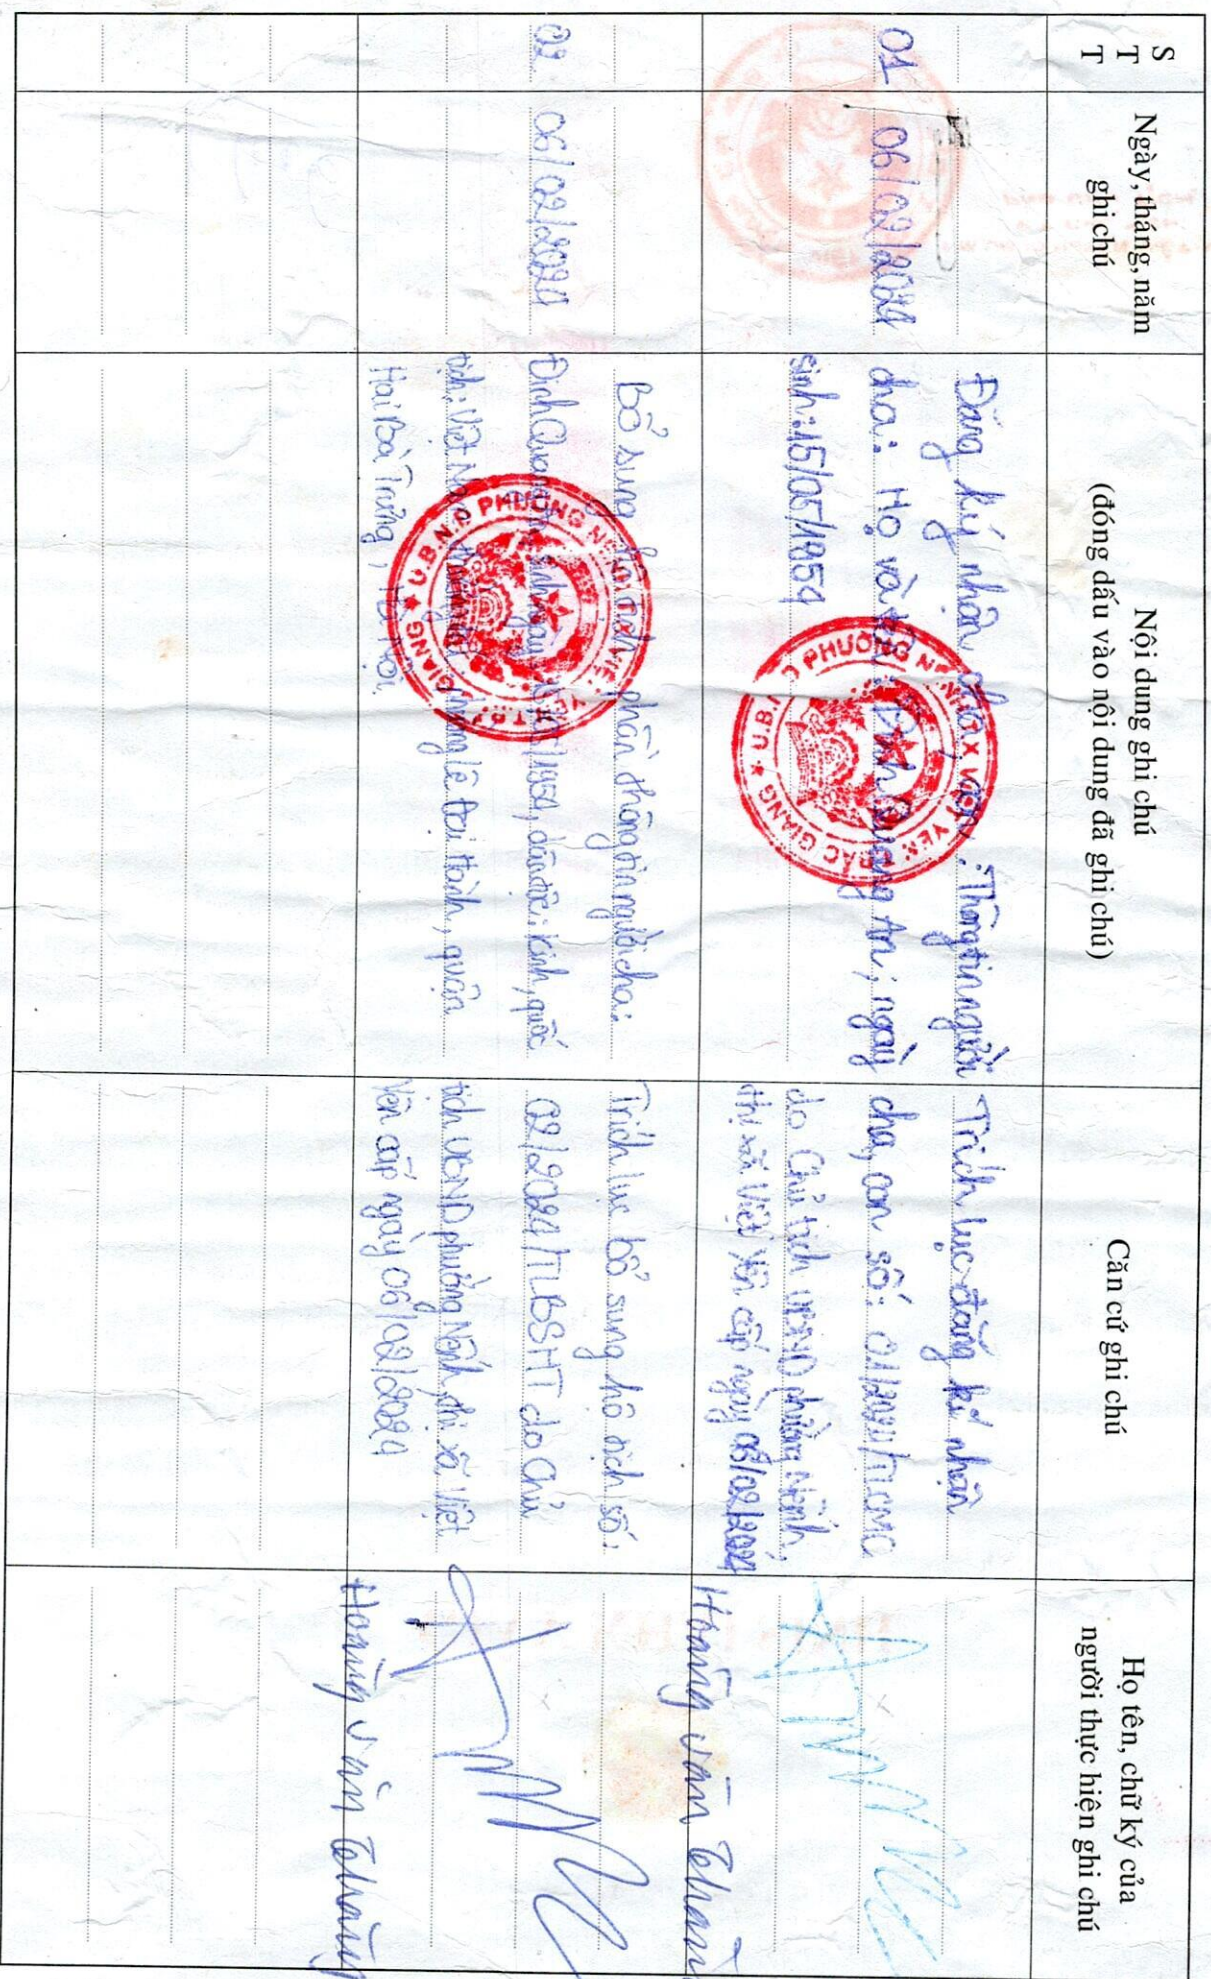 S
T
T
Ngày, tháng, năm
ghi chú
Nội dung ghi chú
(đóng dấu vào nội dung đã ghi chú)
Căn cứ ghi chú
Họ tên, chữ ký của
người thực hiện ghi chú
01
06/02/2024
Đăng ký nhận cha, con: Thông tin người
cha: Họ và tên: Đinh Quang An; ngày
sinh: 15/05/1954
Trích lục đăng ký nhận
cha, con số: 01/2024/TLCMC
do Chủ tịch UBND phường Nếnh,
thị xã Việt Yên cấp ngày 06/02/2024
Hoàng Văn
02
06/02/2024
Bổ sung hộ tịch phần thông tin người cha:
Đinh Quang sinh ngày 1954, dân tộc: Kinh, quốc
tịch: Việt Nam phường Lê Đại Hành, quận
Hai Bà Trưng, Hà Nội.
Trích lục bổ sung hộ tịch số:
02/2024/TLBSHT do Chủ
tịch UBND phường Nếnh, thị xã Việt
Yên cấp ngày 06/02/2024
Hoàng Văn
U.B.N.D PHƯỜNG NẾNH T.X VIỆT YÊN T. BẮC GIANG
U.B.N.D PHƯỜNG T.X VIỆT YÊN GIANG